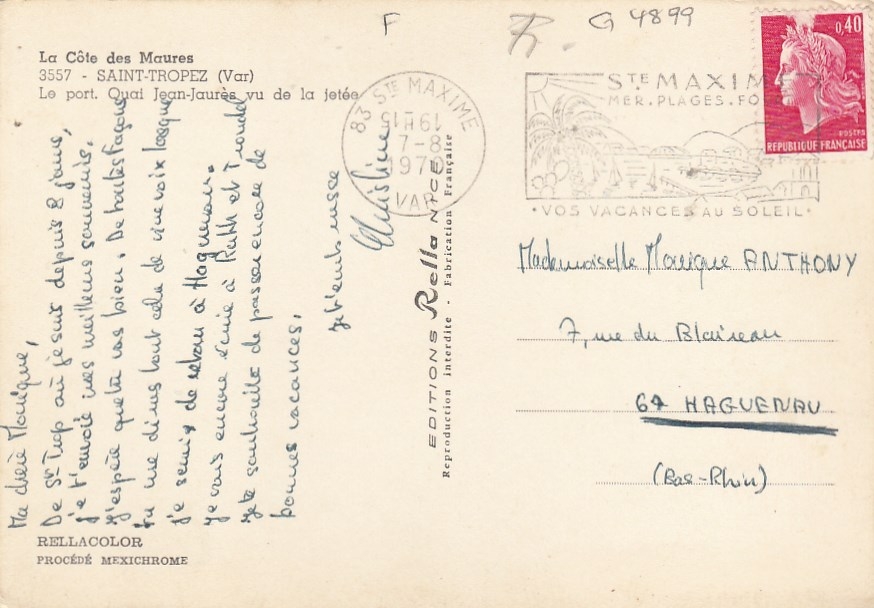 F
G 4899
La Côte des Maures
3557 - SAINT-TROPEZ (Var)
Le port. Quai Jean-Jaurès vu de la jetée
83 STE MAXIME
19H15
7-8
1970
VAR
STE MAXIM
MER. PLAGES. FO
VOS VACANCES AU SOLEIL
0,40
POSTES
REPUBLIQUE FRANÇAISE
Ma chère Monique,
De St Trop où je suis depuis 8 jours,
je t'envoie mes meilleurs souvenirs.
J'espère que tu vas bien. De toutes façons
tu me diras tout cela de vive voix lorsque
je serais de retour à Haguenau.
Je vais encore écrire à Ruth et
Je te souhaite de passer encore de
bonnes vacances.
Je t'embrasse
Christine
EDITIONS Rella NICE
Reproduction interdite - Fabrication Française
Mademoiselle Monique ANTHONY
7, rue du Blaireau
67 HAGUENAU
(Bas-Rhin)
RELLACOLOR
PROCÉDÉ MEXICHROME